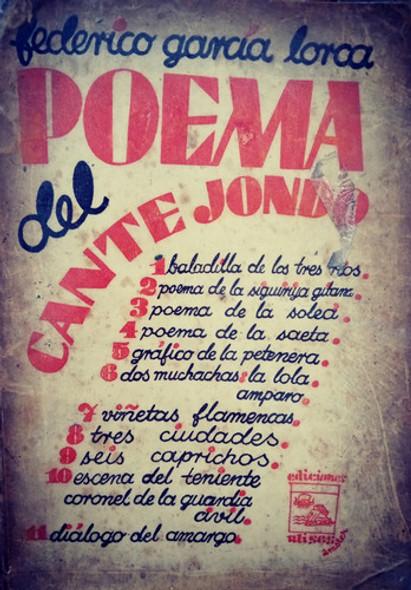 federico garcía lorca
POEMA
del
CANTE JONDO
1 baladilla de los tres ríos.
2 poema de la siguiriya gitana.
3 poema de la soleá.
4 poema de la saeta.
5 gráfico de la petenera.
6 dos muchachas: la lola.
amparo.
7 viñetas flamencas.
8 tres ciudades.
9 seis caprichos.
10 escena del teniente
coronel de la guardia
civil.
11 diálogo del amargo.
ediciones
ulises